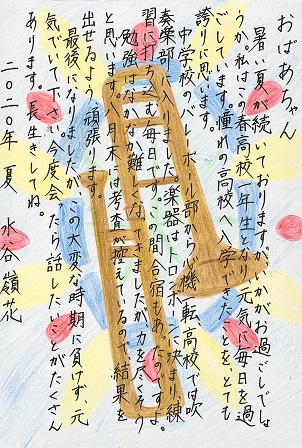 おばあちゃん
暑い夏が続いておりますが、いかがお過ごしでしょ
うか。私はこの春高校一年生となり、元気に毎日を過
ごしています。憧れの高校へ入学できたことを、とても
誇りに思います。
中学校のバレーボール部から心機一転、高校では吹
奏楽部へ入りました。楽器はトロンボーンに決まり、練
習に打ち込む毎日です。この間合宿もあったのですよ。
勉強はなかなか難しくなってきましたが、力を尽くそう
と思います。今月末には考査が控えているので、結果を
出せるよう、頑張ります。
最後になりましたが、この大変な時期に負けず、元
気でいて下さい。今度会ったら話したいことがたくさん
あります。長生きしてね。
二〇二〇年 夏 水谷嶺花